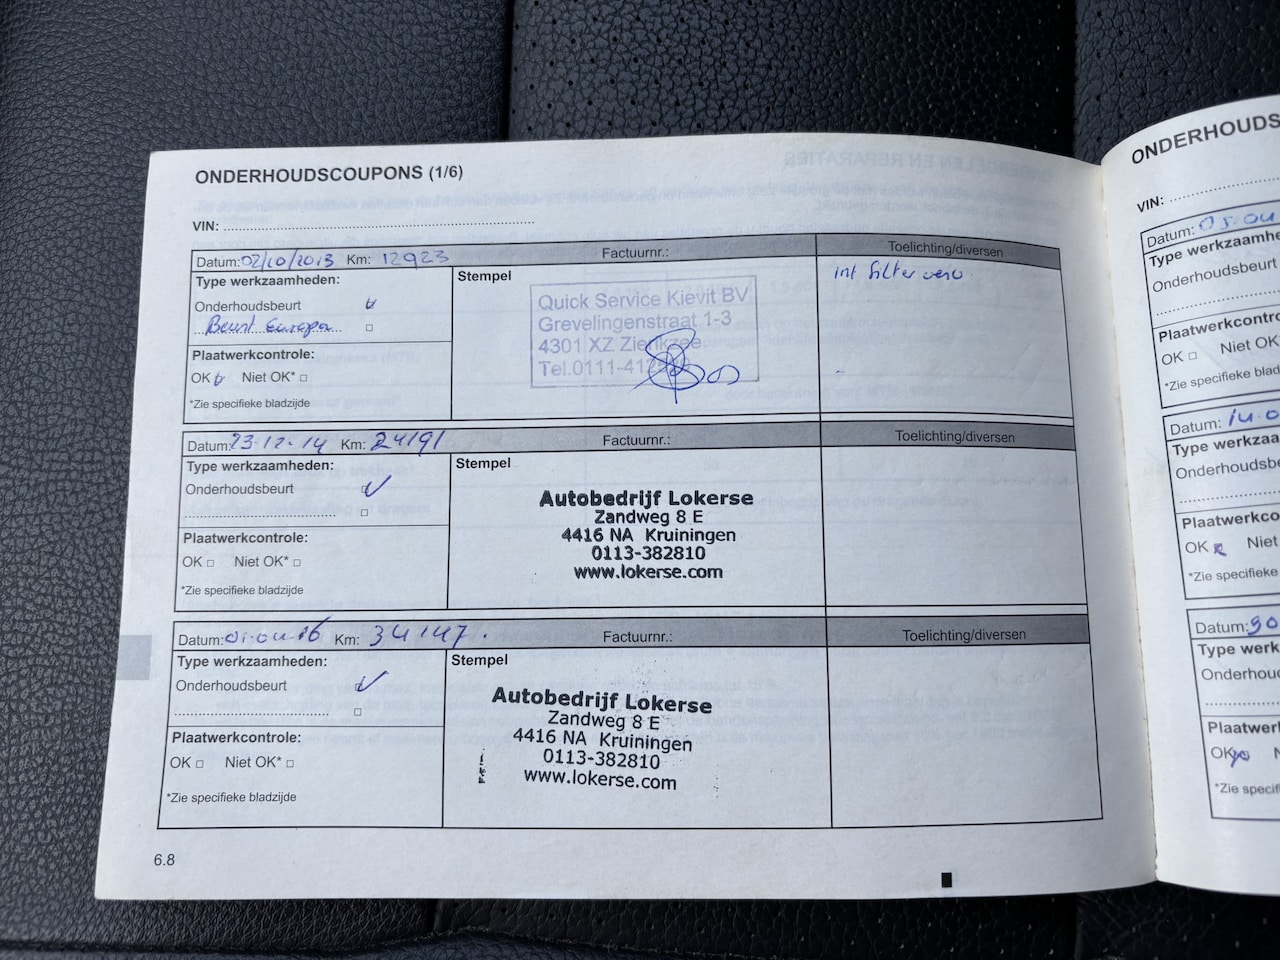 ONDERHOUDSCOUPONS (1/6)
VIN:
Datum: 02/10/2013 Km: 12923 Factuurnr.: Toelichting/diversen
Type werkzaamheden:
Onderhoudsbeurt
Beurt Europa
Plaatwerkcontrole:
OK Niet OK*
*Zie specifieke bladzijde
Stempel
Quick Service Kievit BV
Grevelingenstraat 1-3
4301 XZ Zierikzee
Tel.0111-412
int filter verv
Datum: 23-12-14 Km: 24191 Factuurnr.: Toelichting/diversen
Type werkzaamheden:
Onderhoudsbeurt
Plaatwerkcontrole:
OK Niet OK*
*Zie specifieke bladzijde
Stempel
Autobedrijf Lokerse
Zandweg 8 E
4416 NA Kruiningen
0113-382810
www.lokerse.com
Datum: 01-04-16 Km: 34147. Factuurnr.: Toelichting/diversen
Type werkzaamheden:
Onderhoudsbeurt
Plaatwerkcontrole:
OK Niet OK*
*Zie specifieke bladzijde
Stempel
Autobedrijf Lokerse
Zandweg 8 E
4416 NA Kruiningen
0113-382810
www.lokerse.com
6.8
ONDERHOUDS
VIN:
Datum: 05-04
Type werkzaamhe
Onderhoudsbeurt
Plaatwerkcontro
OK Niet OK
*Zie specifieke blad
Datum: 14-0
Type werkza
Onderhoudsbe
Plaatwerkco
OK Niet
*Zie specifie
Datum: 30
Type werk
Onderhou
Plaatwerk
OK N
*Zie speci